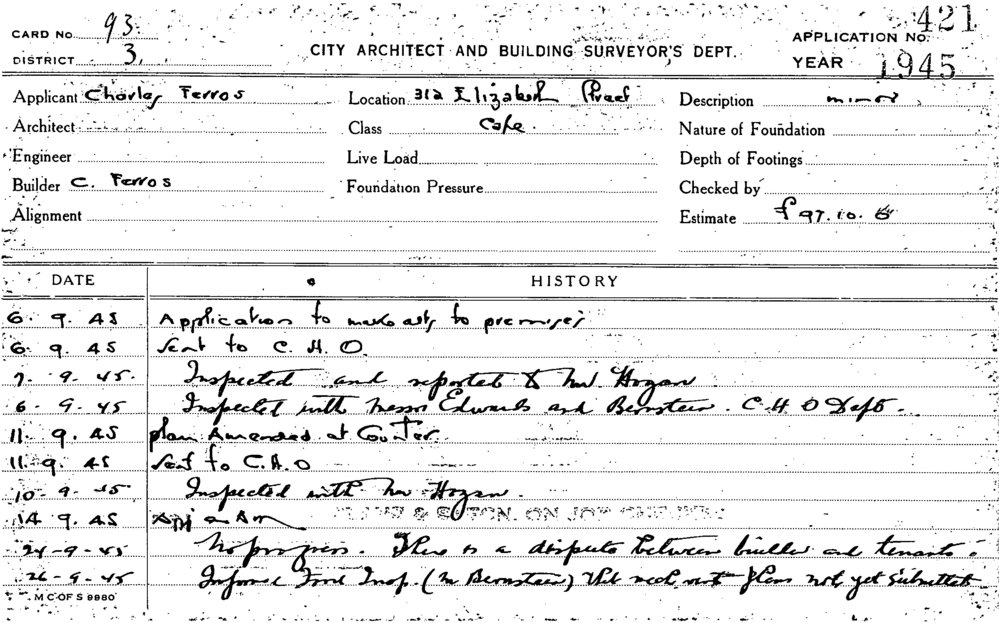 CARD No. 93
421
APPLICATION No.
DISTRICT 3.
CITY ARCHITECT AND BUILDING SURVEYOR'S DEPT.
YEAR 1945
Applicant Charles Ferros
Location 312 Elizabeth Street
Description minor
Architect
Class Cafe.
Nature of Foundation
Engineer
Live Load
Depth of Footings
Builder C. Ferros
Foundation Pressure
Checked by
Alignment
Estimate £97.10.
DATE HISTORY
6. 9. 45 Application to make alts to premises
6. 9. 45 Sent to C. H. O.
7. 9. 45. Inspected and reported to Mr Hogan.
6. 9. 45 Inspected with Messrs Edwards and Bernstein. C. H. O Dept.
11. 9. 45 plan Amended at Counter.
11. 9. 45 Sent to C.H.O
10. 9. 45 Inspected with Mr Hogan.
14 9. 45
24-9-45 No progress. There is a dispute between builder and tenants.
26-9-45 Informed Food Insp. (Mr Bernstein) that plans not yet submitted
M C OF S 9980